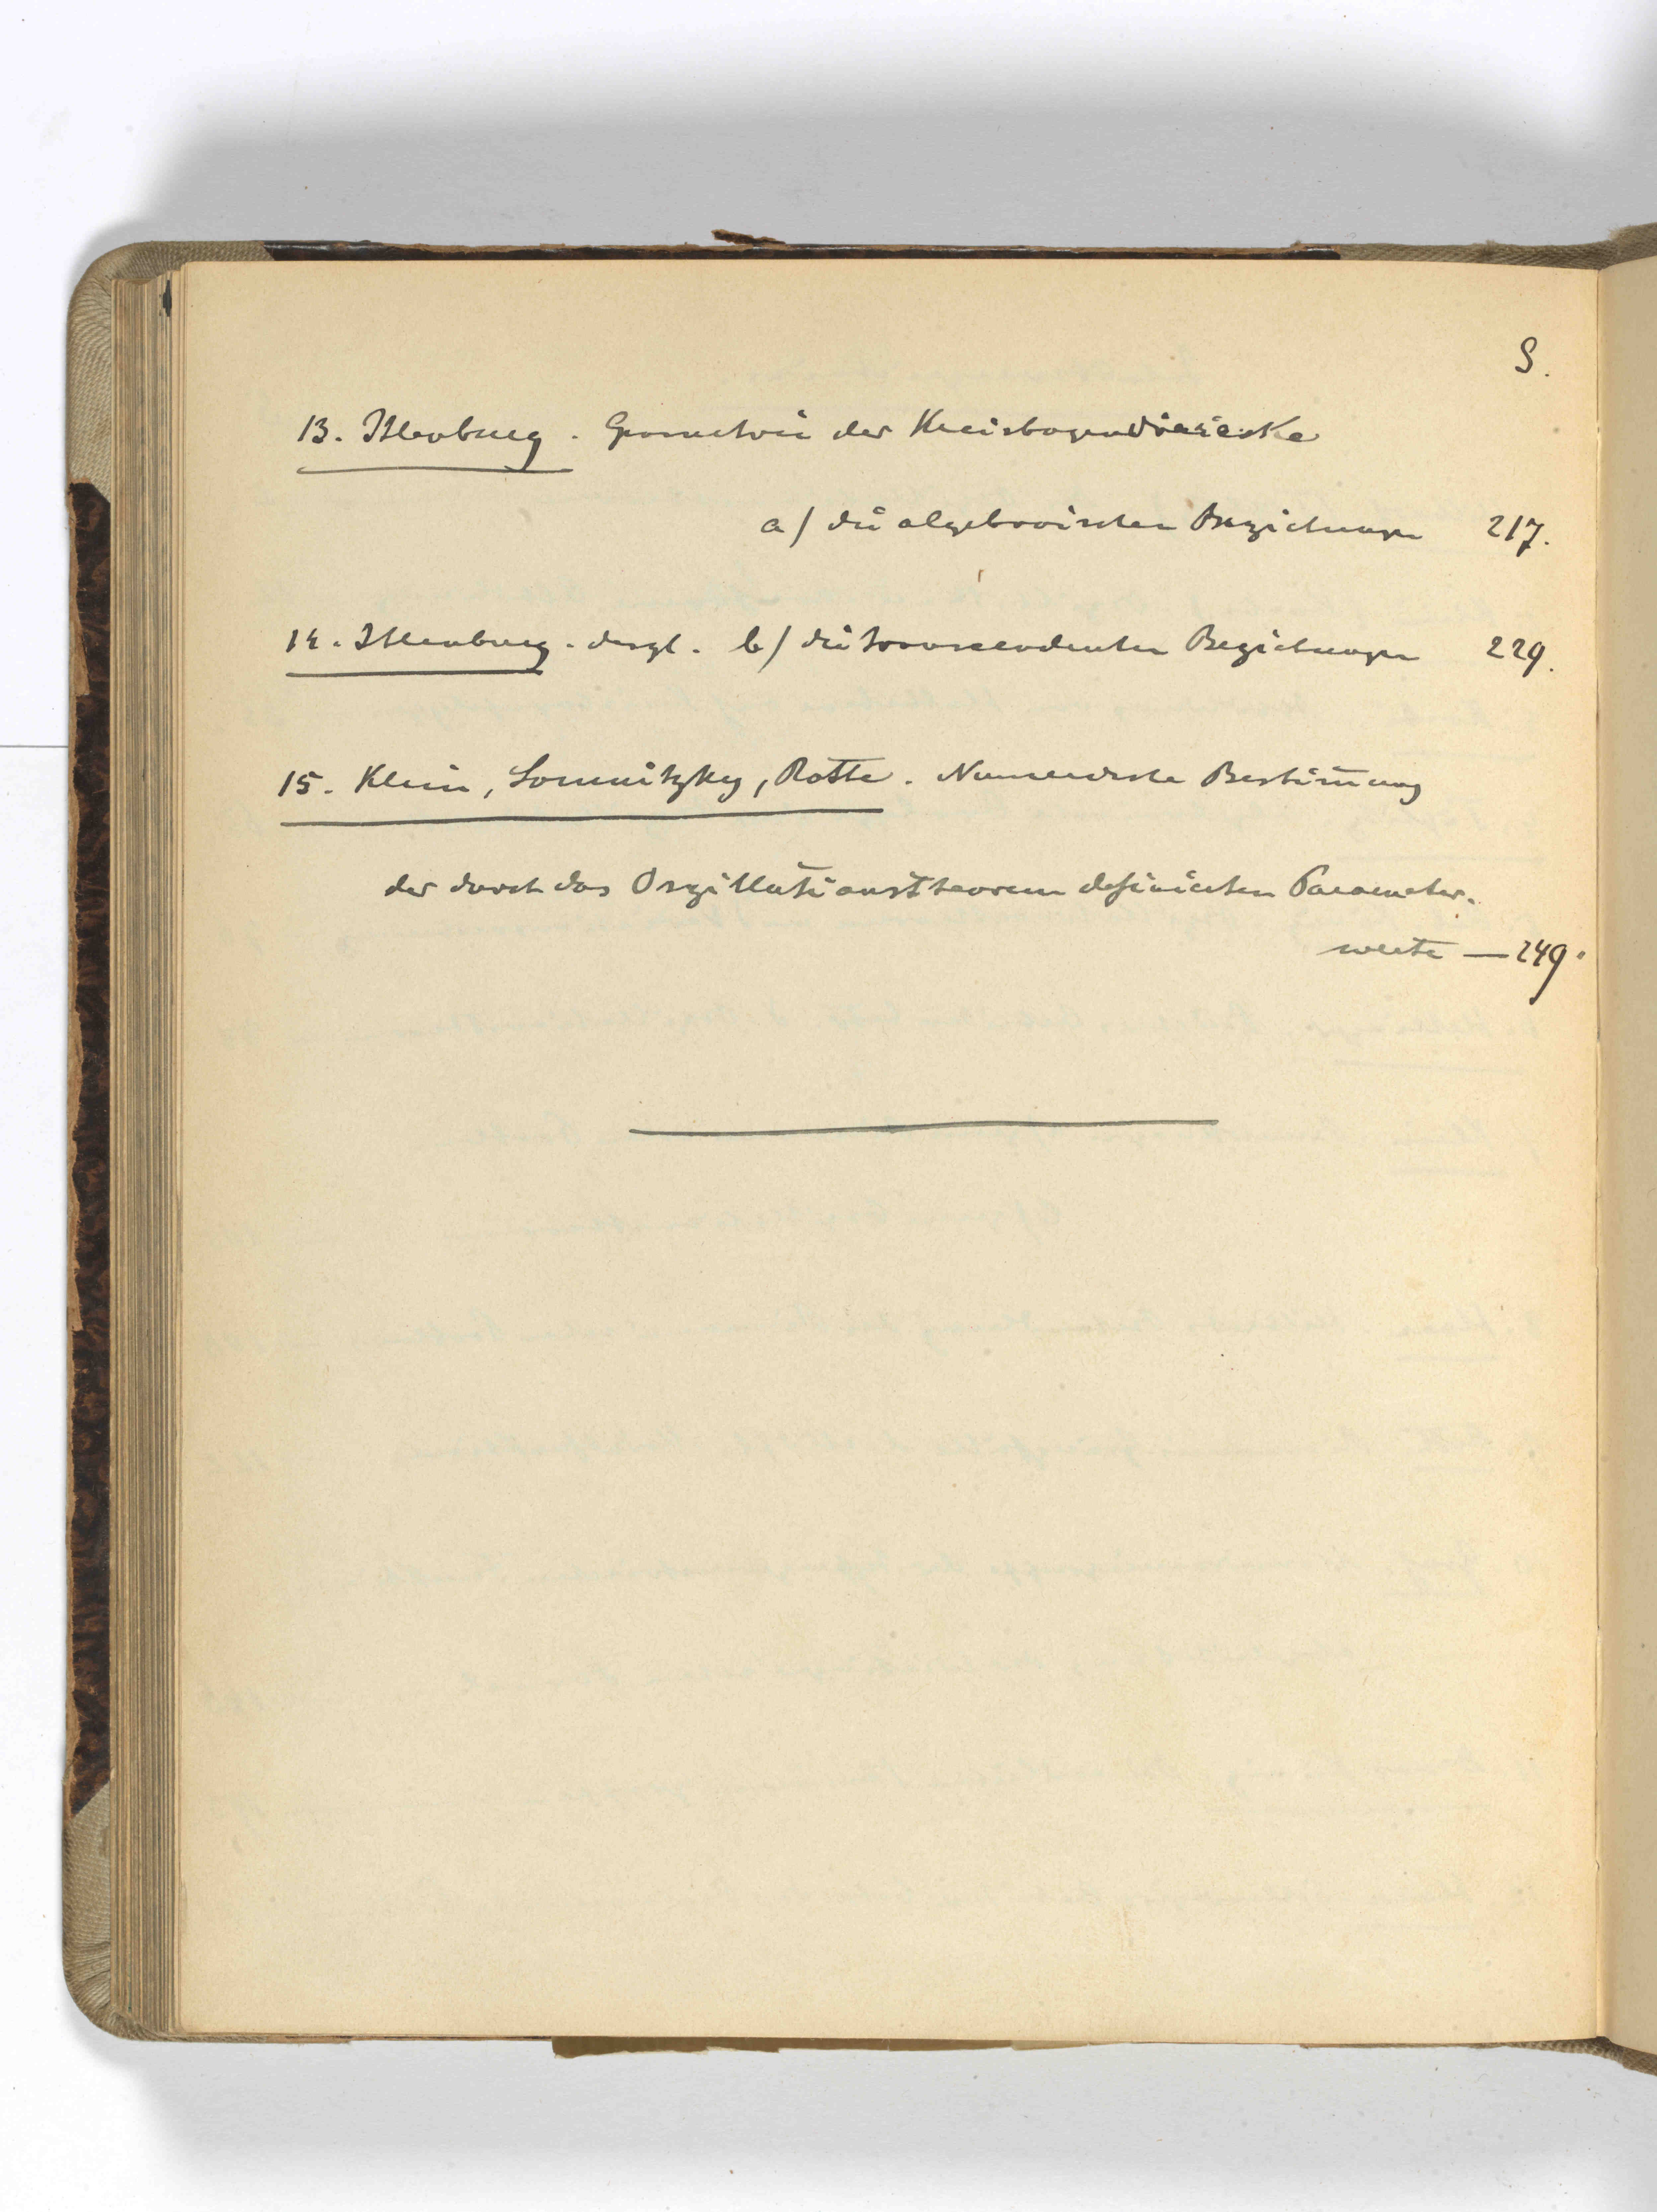 S.
13. Ihlenburg. Geometrie der Kreisbogenvierecke
a) die algebraischen Beziehungen 217.
14. Ihlenburg. desgl. b) die transcendenten Beziehungen 229.
15. Klein, Lomnitzky, Rothe. Numerische Bestim̄ung
der durch das Oszillationstheorem definierten Parameter-
werte — 249.